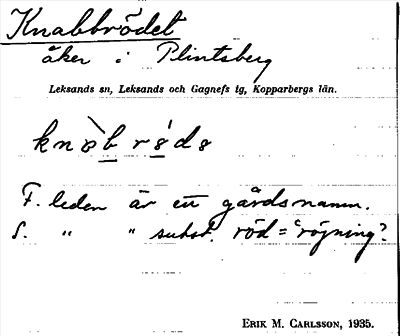 Knabbrödet
åker i Plintsberg
Leksands sn, Leksands och Gagnefs tg, Kopparbergs län.
F. leden är ett gårdsnamn.
S. " " subst. röd = 'röjning'?
ERIK M. CARLSSON, 1935.